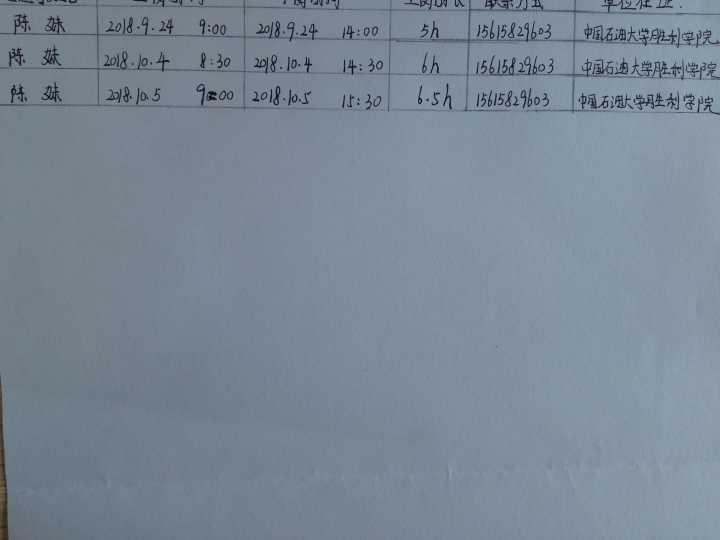 陈 妹 2018.9.24 9:00 2018.9.24 14:00 5h 15615829603 中国石油大学胜利学院
陈 妹 2018.10.4 8:30 2018.10.4 14:30 6h 15615829603 中国石油大学胜利学院
陈 妹 2018.10.5 9:00 2018.10.5 15:30 6.5h 15615829603 中国石油大学胜利学院